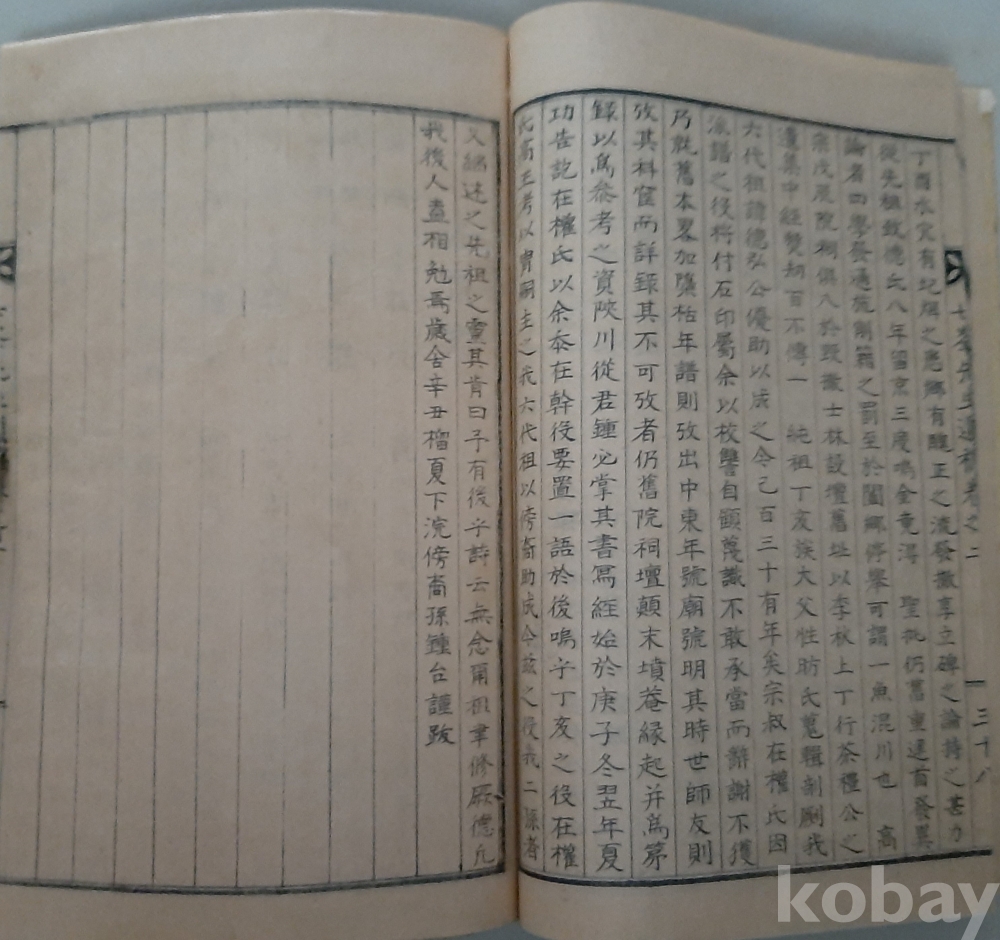 丁酉水灾有圮煙之患鄉有醜正之流發撤享立碑之論持之甚力
從先祖致德氏八年留京三度鳴金竟得 聖批仍舊重建首發異
論者四學發通施削籍之罰至於闔鄉停擧可謂一魚混川也 高
宗戊辰院祠俱入於毁撤士林設壇舊址以季秋上丁行茶禮公之
遺集中經雙刼百不傳一 純祖丁亥族大父性昉氏蒐輯剞劂我
六代祖諱德弘公優助以成之今已百三十有年矣宗叔在權氏因
派譜之役將付石印屬余以校讐自顧蔑識不敢承當而辭謝不獲
乃就舊本畧加櫽栝年譜則攷出中東年號廟號明其時世師友則
攷其科宦而詳錄其不可攷者仍舊院祠壇顛末墳菴緣起并爲第
錄以爲參考之資陜川從君鍾必掌其書寫經始於庚子冬翌年夏
功告訖在權氏以余忝在幹役要置一語於後嗚乎丁亥之役在權
氏高王考以胄嗣主之我六代祖以傍裔助成今玆之役我二孫者
又繼述之先祖之靈其肯曰予有後乎詩云無念爾祖聿修厥德凡
我後人盍相勉焉歲舍辛丑榴夏下浣傍裔孫鍾台謹跋
先生遺稿卷之二
三十八
kobay